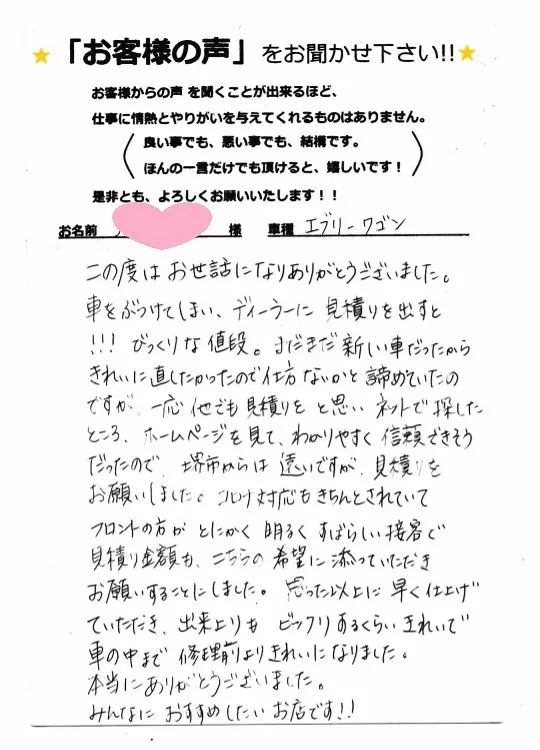 「お客様の声」をお聞かせ下さい!!
お客様からの声を聞くことが出来るほど、
仕事に情熱とやりがいを与えてくれるものはありません。
良い事でも、悪い事でも、結構です。
ほんの一言だけでも頂けると、嬉しいです！
是非とも、よろしくお願いいたします！！
お名前 様 車種 エブリーワゴン
この度はお世話になりありがとうございました。
車をぶつけてしまい、ディーラーに見積りを出すと
!!! びっくりな値段。まだまだ新しい車だったから
きれいに直したかったので仕方ないかと諦めていたの
ですが、一応他でも見積りをと思いネットで探した
ところ、ホームページを見て、わかりやすく信頼できそう
だったので、堺市からは遠いですが、見積りを
お願いしました。コロナ対応もきちんとされていて
フロントの方がとにかく明るくすばらしい接客で
見積り金額も、こちらの希望に添っていただき
お願いすることにしました。思った以上に早く仕上げ
ていただき、出来上りもビックリするくらいきれいで
車の中まで修理前よりきれいになりました。
本当にありがとうございました。
みんなにおすすめしたいお店です!!